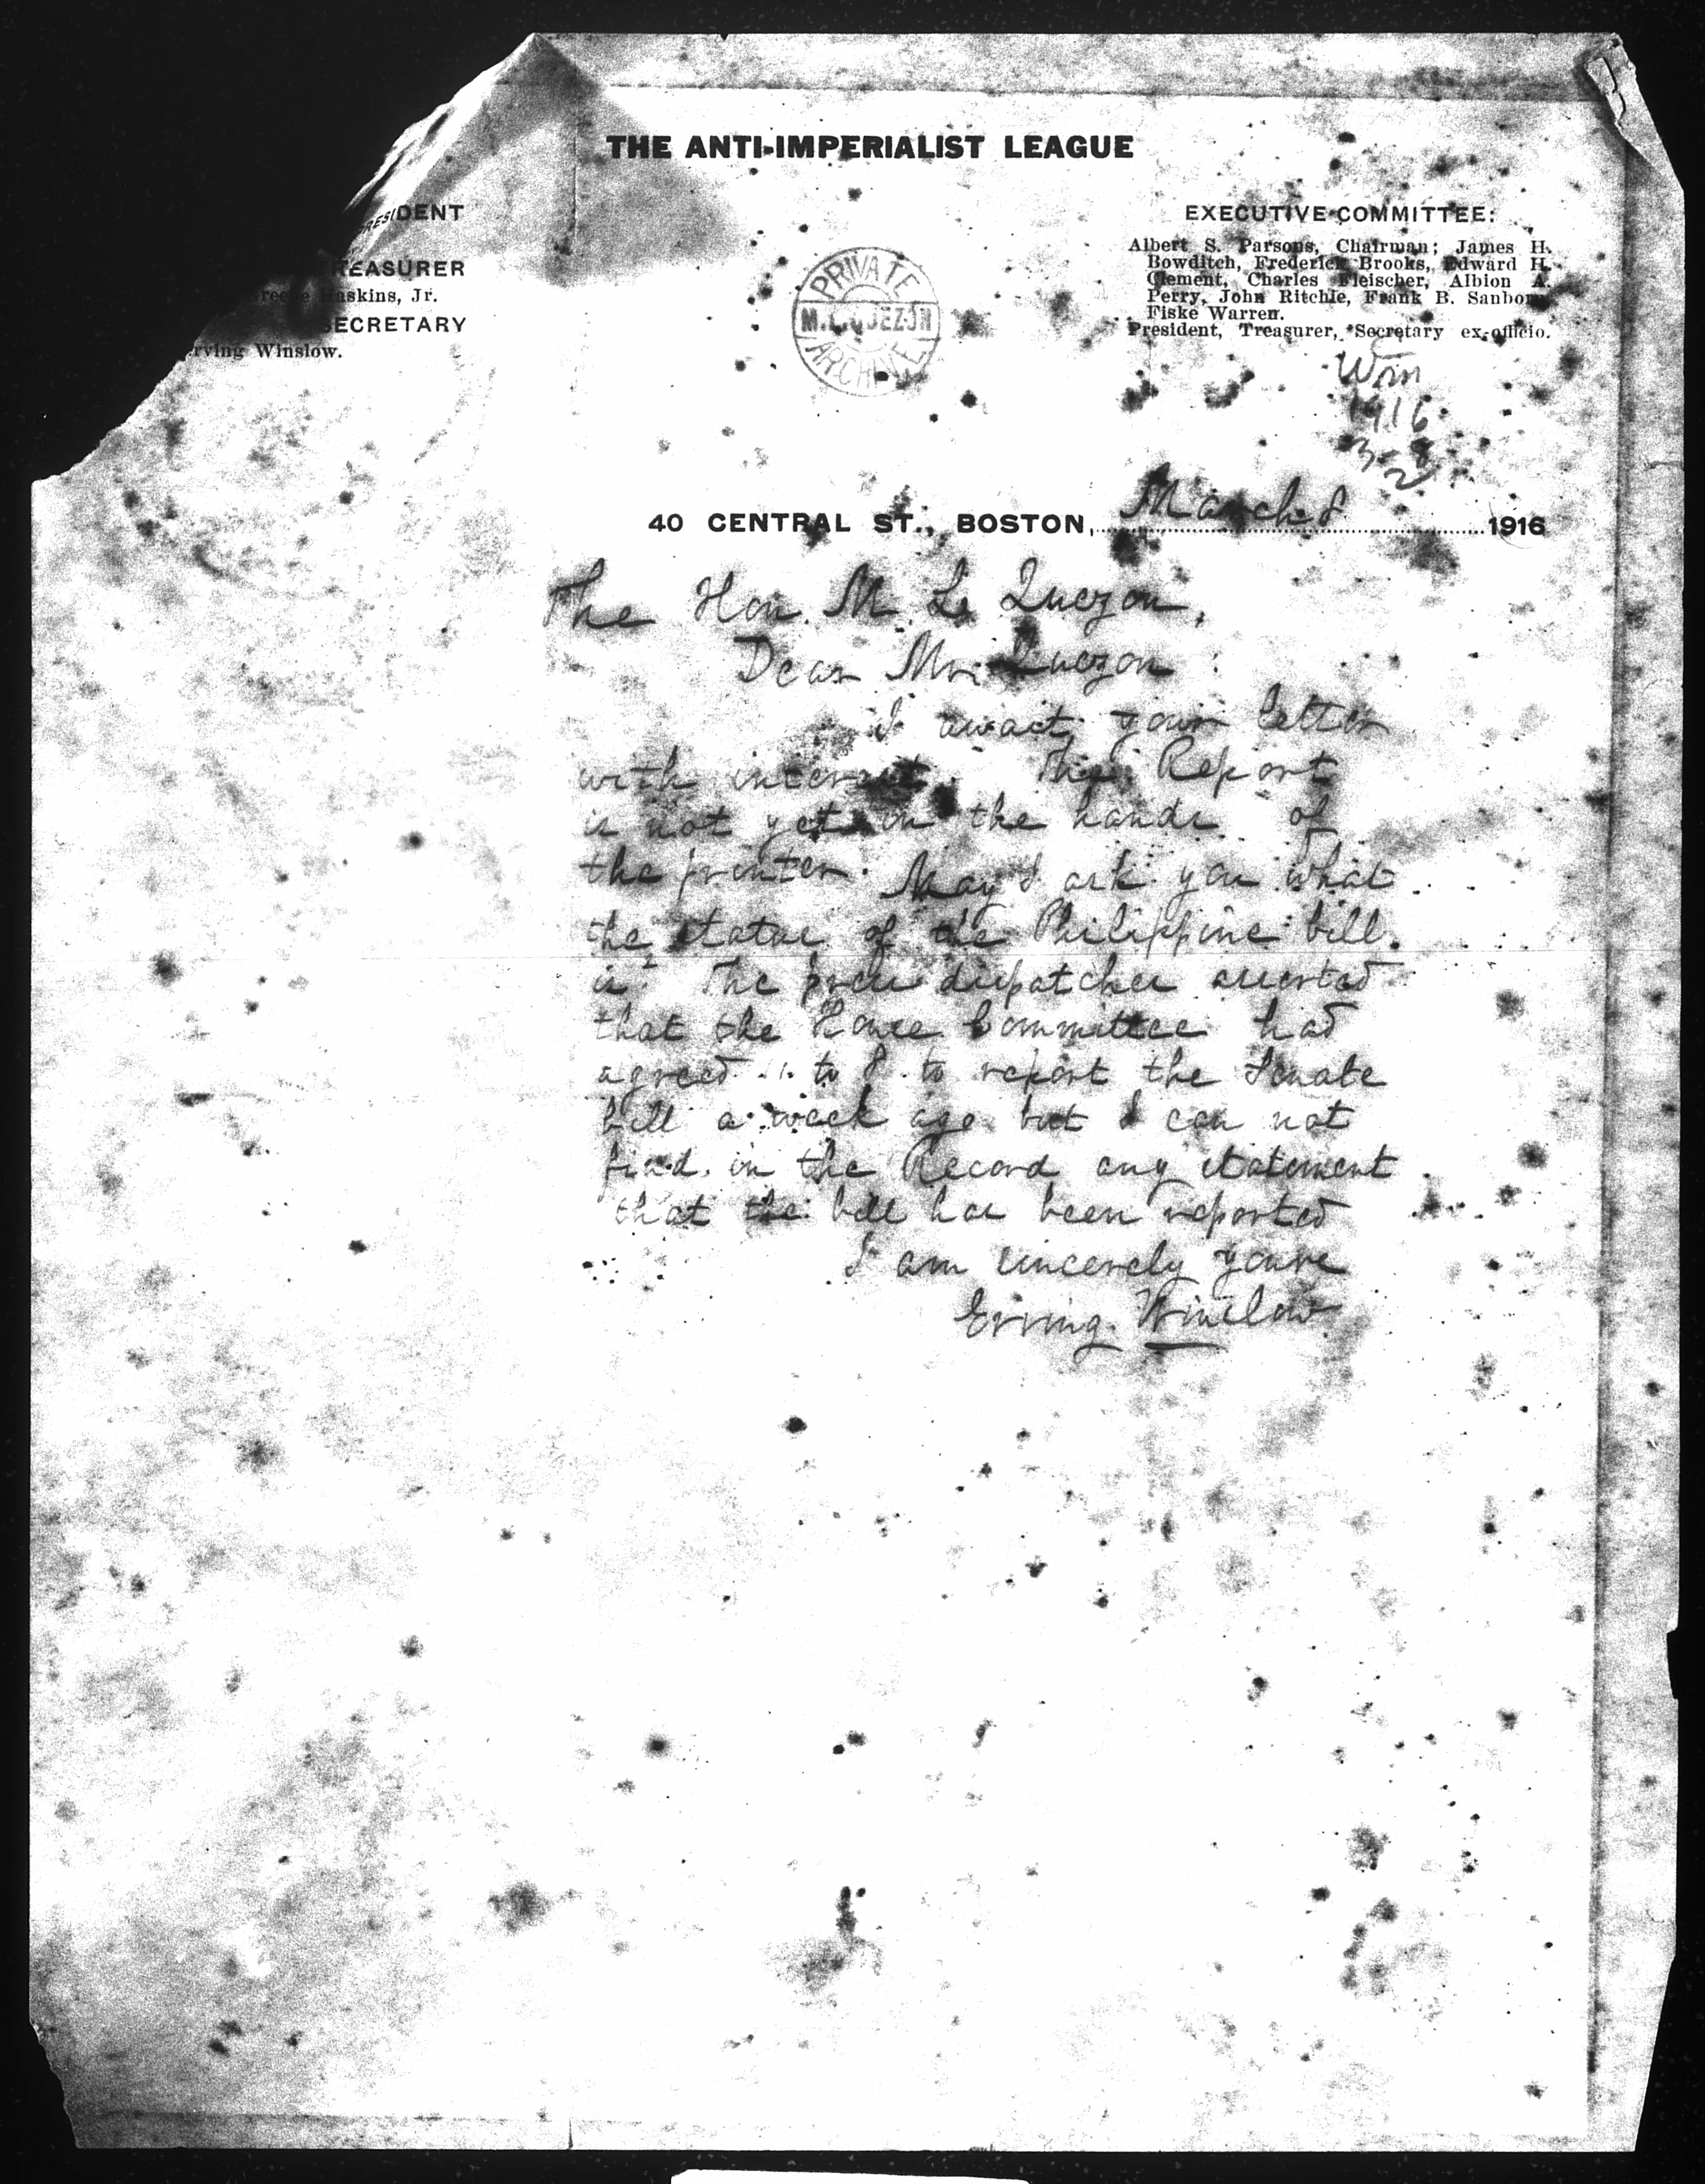 THE ANTI-IMPERIALIST LEAGUE
PRESIDENT
TREASURER
Haskins, Jr.
SECRETARY
Erving Winslow.
EXECUTIVE COMMITTEE:
Albert S. Parsons, Chairman; James H.
Bowditch, Frederick Brooks, Edward H.
Clement, Charles Fleischer, Albion A.
Perry, John Ritchie, Frank B. Sanborn,
Fiske Warren.
President, Treasurer, Secretary ex-officio.
PRIVATE
M.L.QUEZON
ARCHIVE
Win
1916
3-8
2
40 CENTRAL ST., BOSTON, March 8 1916
The Hon. M. L. Quezon,
Dear Mr. Quezon:
I await your letter
with interest. The Report
is not yet in the hands of
the printer. May I ask you what
the status of the Philippine bill
is? The press dispatches asserted
that the House Committee had
agreed to to report the Senate
bill a week ago but I can not
find in the Record any statement
that the bill has been reported
I am sincerely yours
Erving Winslow